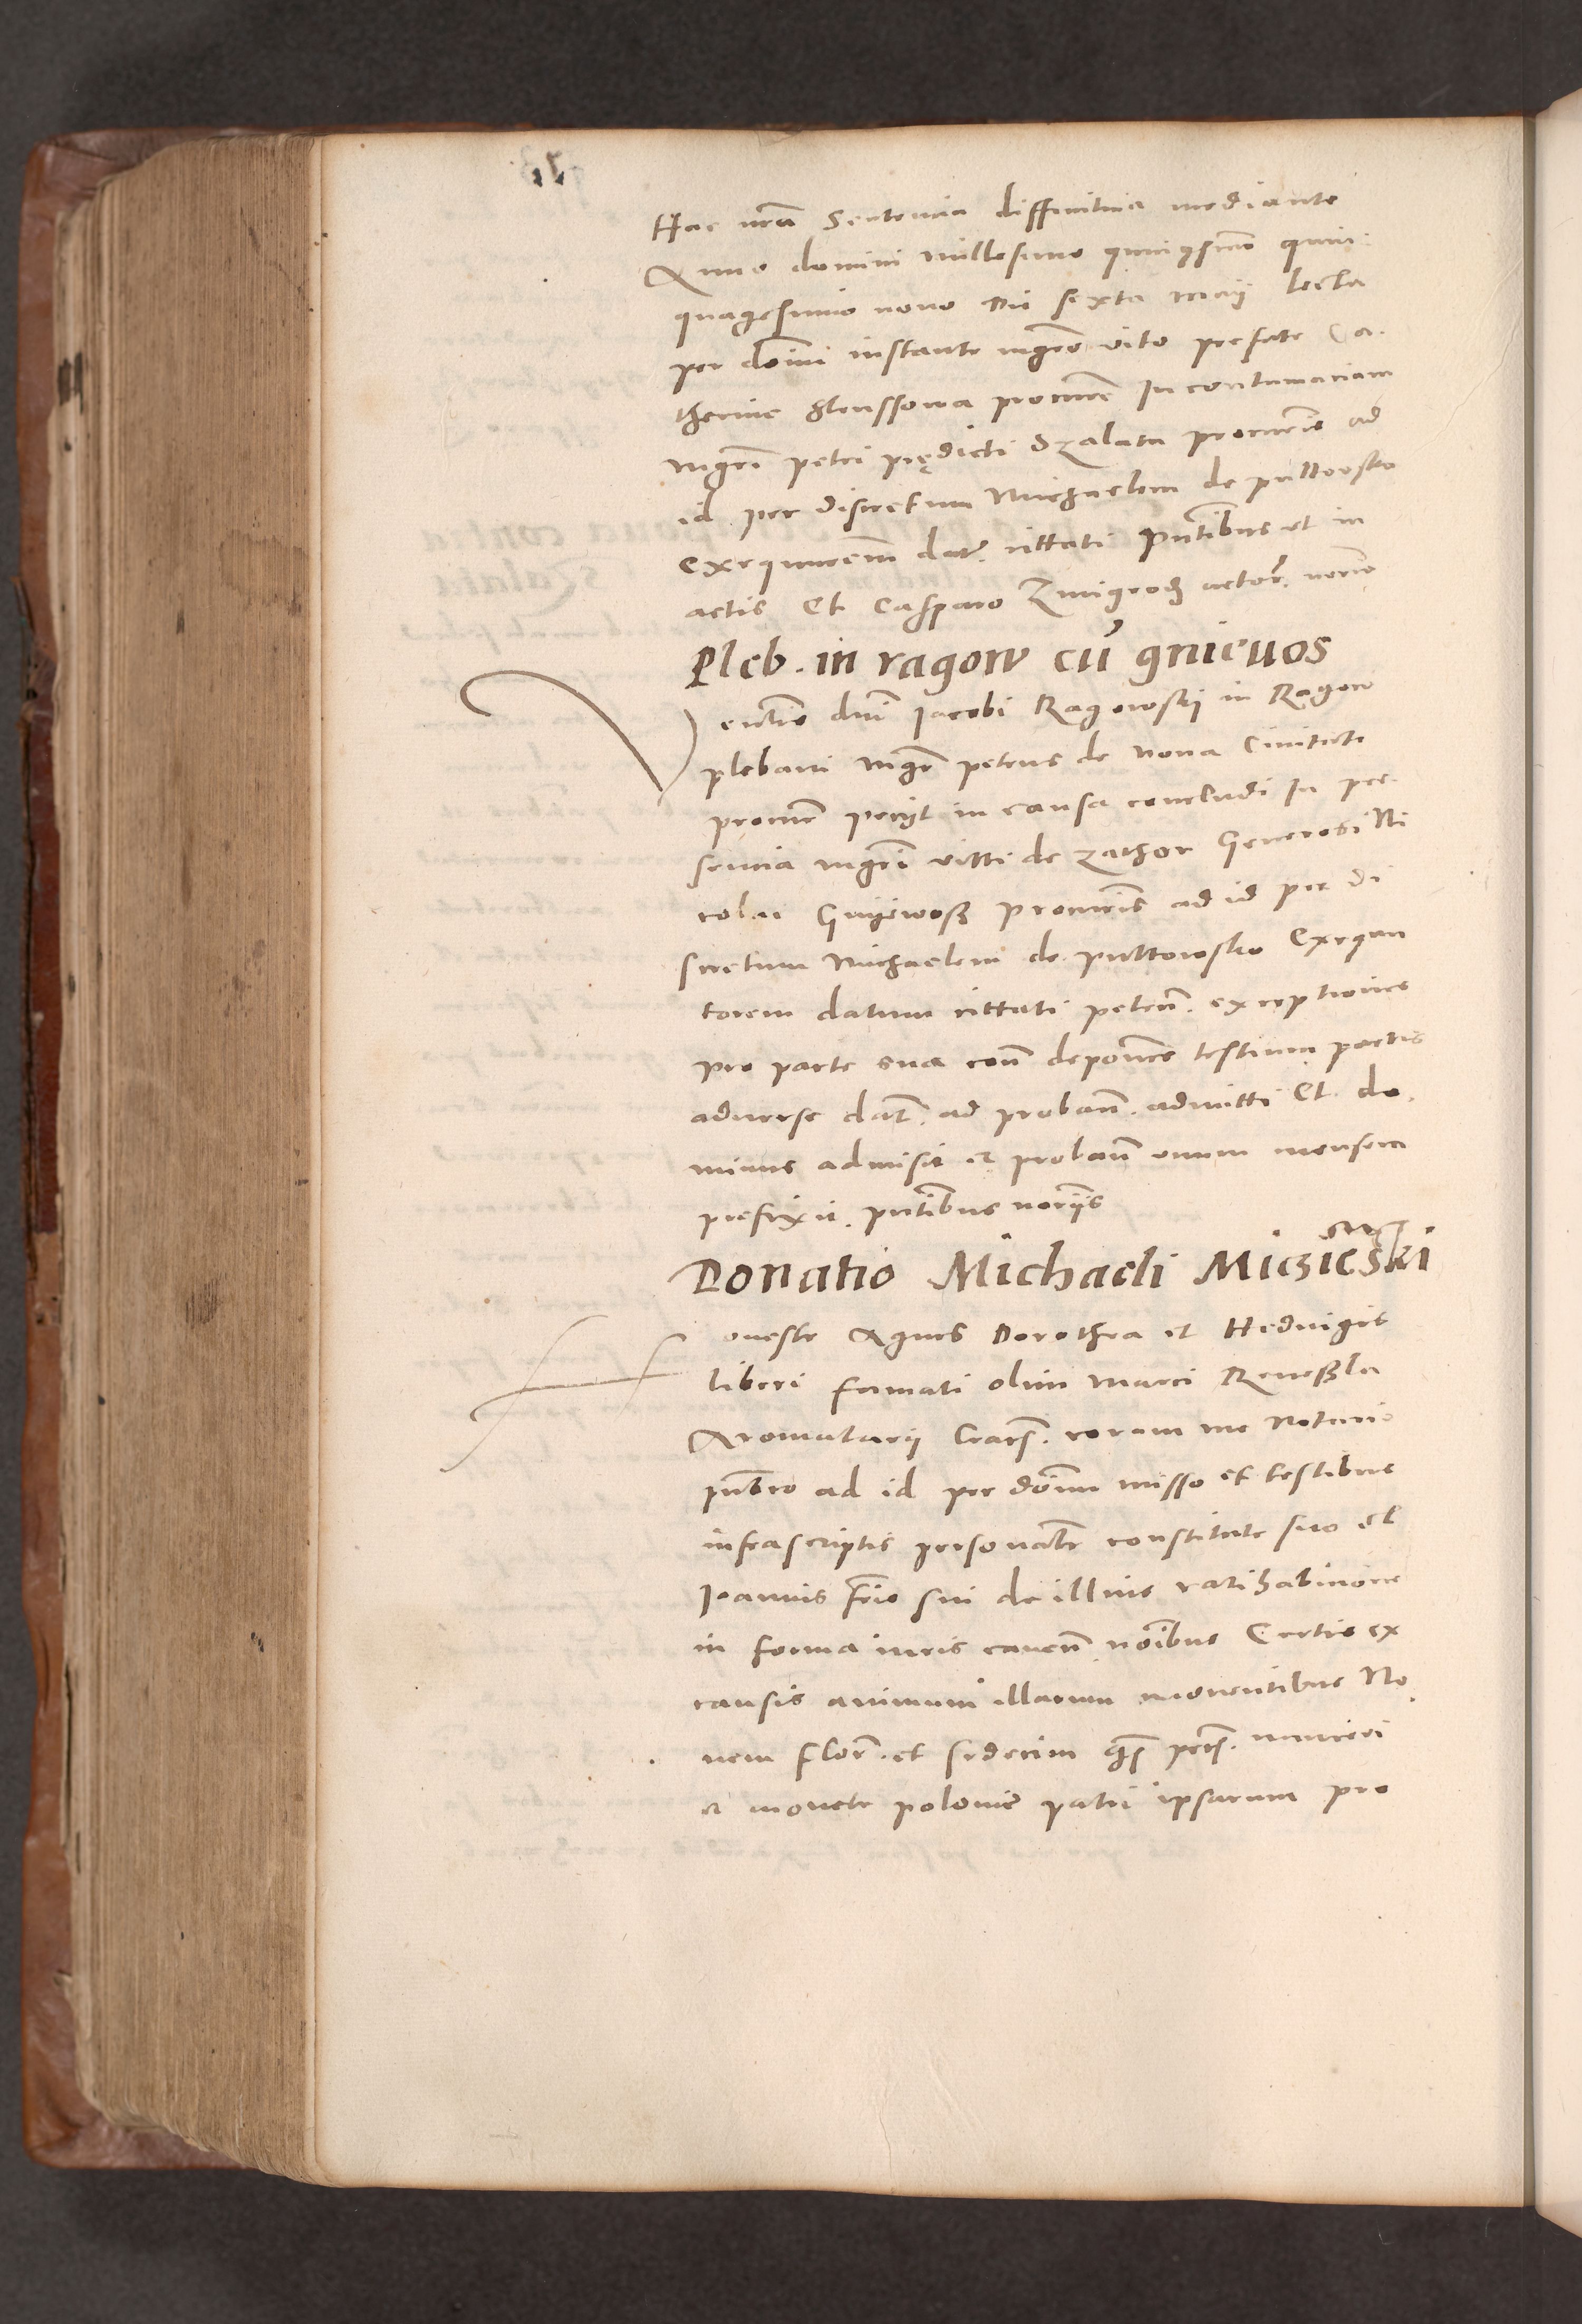 Hac nrã Sentencia diffinitiva mediante
Anno domini millesimo quingesimo quin:
quagesimo nono die sexta maij lecta
per dõm̃ instante mgrõ vito prefate Ca.
therine procure In contumaciam
mgrĩ petri prędicti Szalata procurĩs ad
id per discretum Michaelem de pulltowsko
exequutorem datũ. cittati pñtibus ut in
actis Et Casparo Zmigrod actor̃. notrio
Pleb. in ragow cũ gnieuos
Ventio dnĩ Jacobi Ragowskij in Ragow
plebani mgr̃ petrus de Nova Civitate
procur̃ petijt in causa concludi In pre-
sencia mgrĩ vitti de zathor Generosi Ni
colai Gnijewosz procuris̃ ad id per di
scretum Michaelem de pulltowsko Exequu
torem datum cittati peteñ. exceptiones
pro parte sua coñ deponẽs testium partis
adverse dat̃. ad probañ. admitti Et do.
minus admisit et probañ unum mensem
prefixit. pñtibus norijs
Donatio Michaeli Miczieski
Honeste Agnes Dorothea et Hedvigis
liberi famati olim Marci
Aromatarij Cracs̃. coram me Notario
pub̃co ad id per dõnum misso et testibus
infrascriptis personalr̃ constitute suo et
Joannis fr̃is sui de illius ratihabicione
in forma iuris caveñ nõibus Certis ex
causis animum illarum moventibus No
vem flor̃. et sedecim gs̃ pecs̃. numeri
et monete polonie patri ipsarum pro